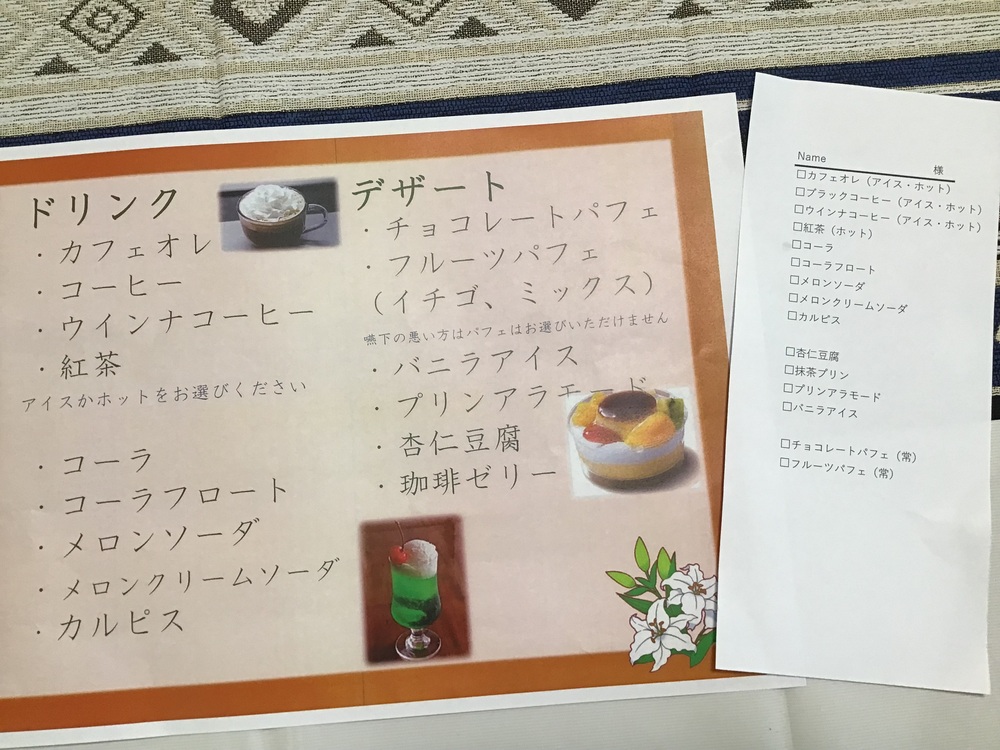 ドリンク
・カフェオレ
・コーヒー
・ウインナコーヒー
・紅茶
アイスかホットをお選びください
・コーラ
・コーラフロート
・メロンソーダ
・メロンクリームソーダ
・カルピス
デザート
・チョコレートパフェ
・フルーツパフェ
（イチゴ、ミックス）
嚥下の悪い方はパフェはお選びいただけません
・バニラアイス
・プリンアラモード
・杏仁豆腐
・珈琲ゼリー
Name 様
□カフェオレ（アイス・ホット）
□ブラックコーヒー（アイス・ホット）
□ウインナコーヒー（アイス・ホット）
□紅茶（ホット）
□コーラ
□コーラフロート
□メロンソーダ
□メロンクリームソーダ
□カルピス
□杏仁豆腐
□抹茶プリン
□プリンアラモード
□バニラアイス
□チョコレートパフェ（常）
□フルーツパフェ（常）